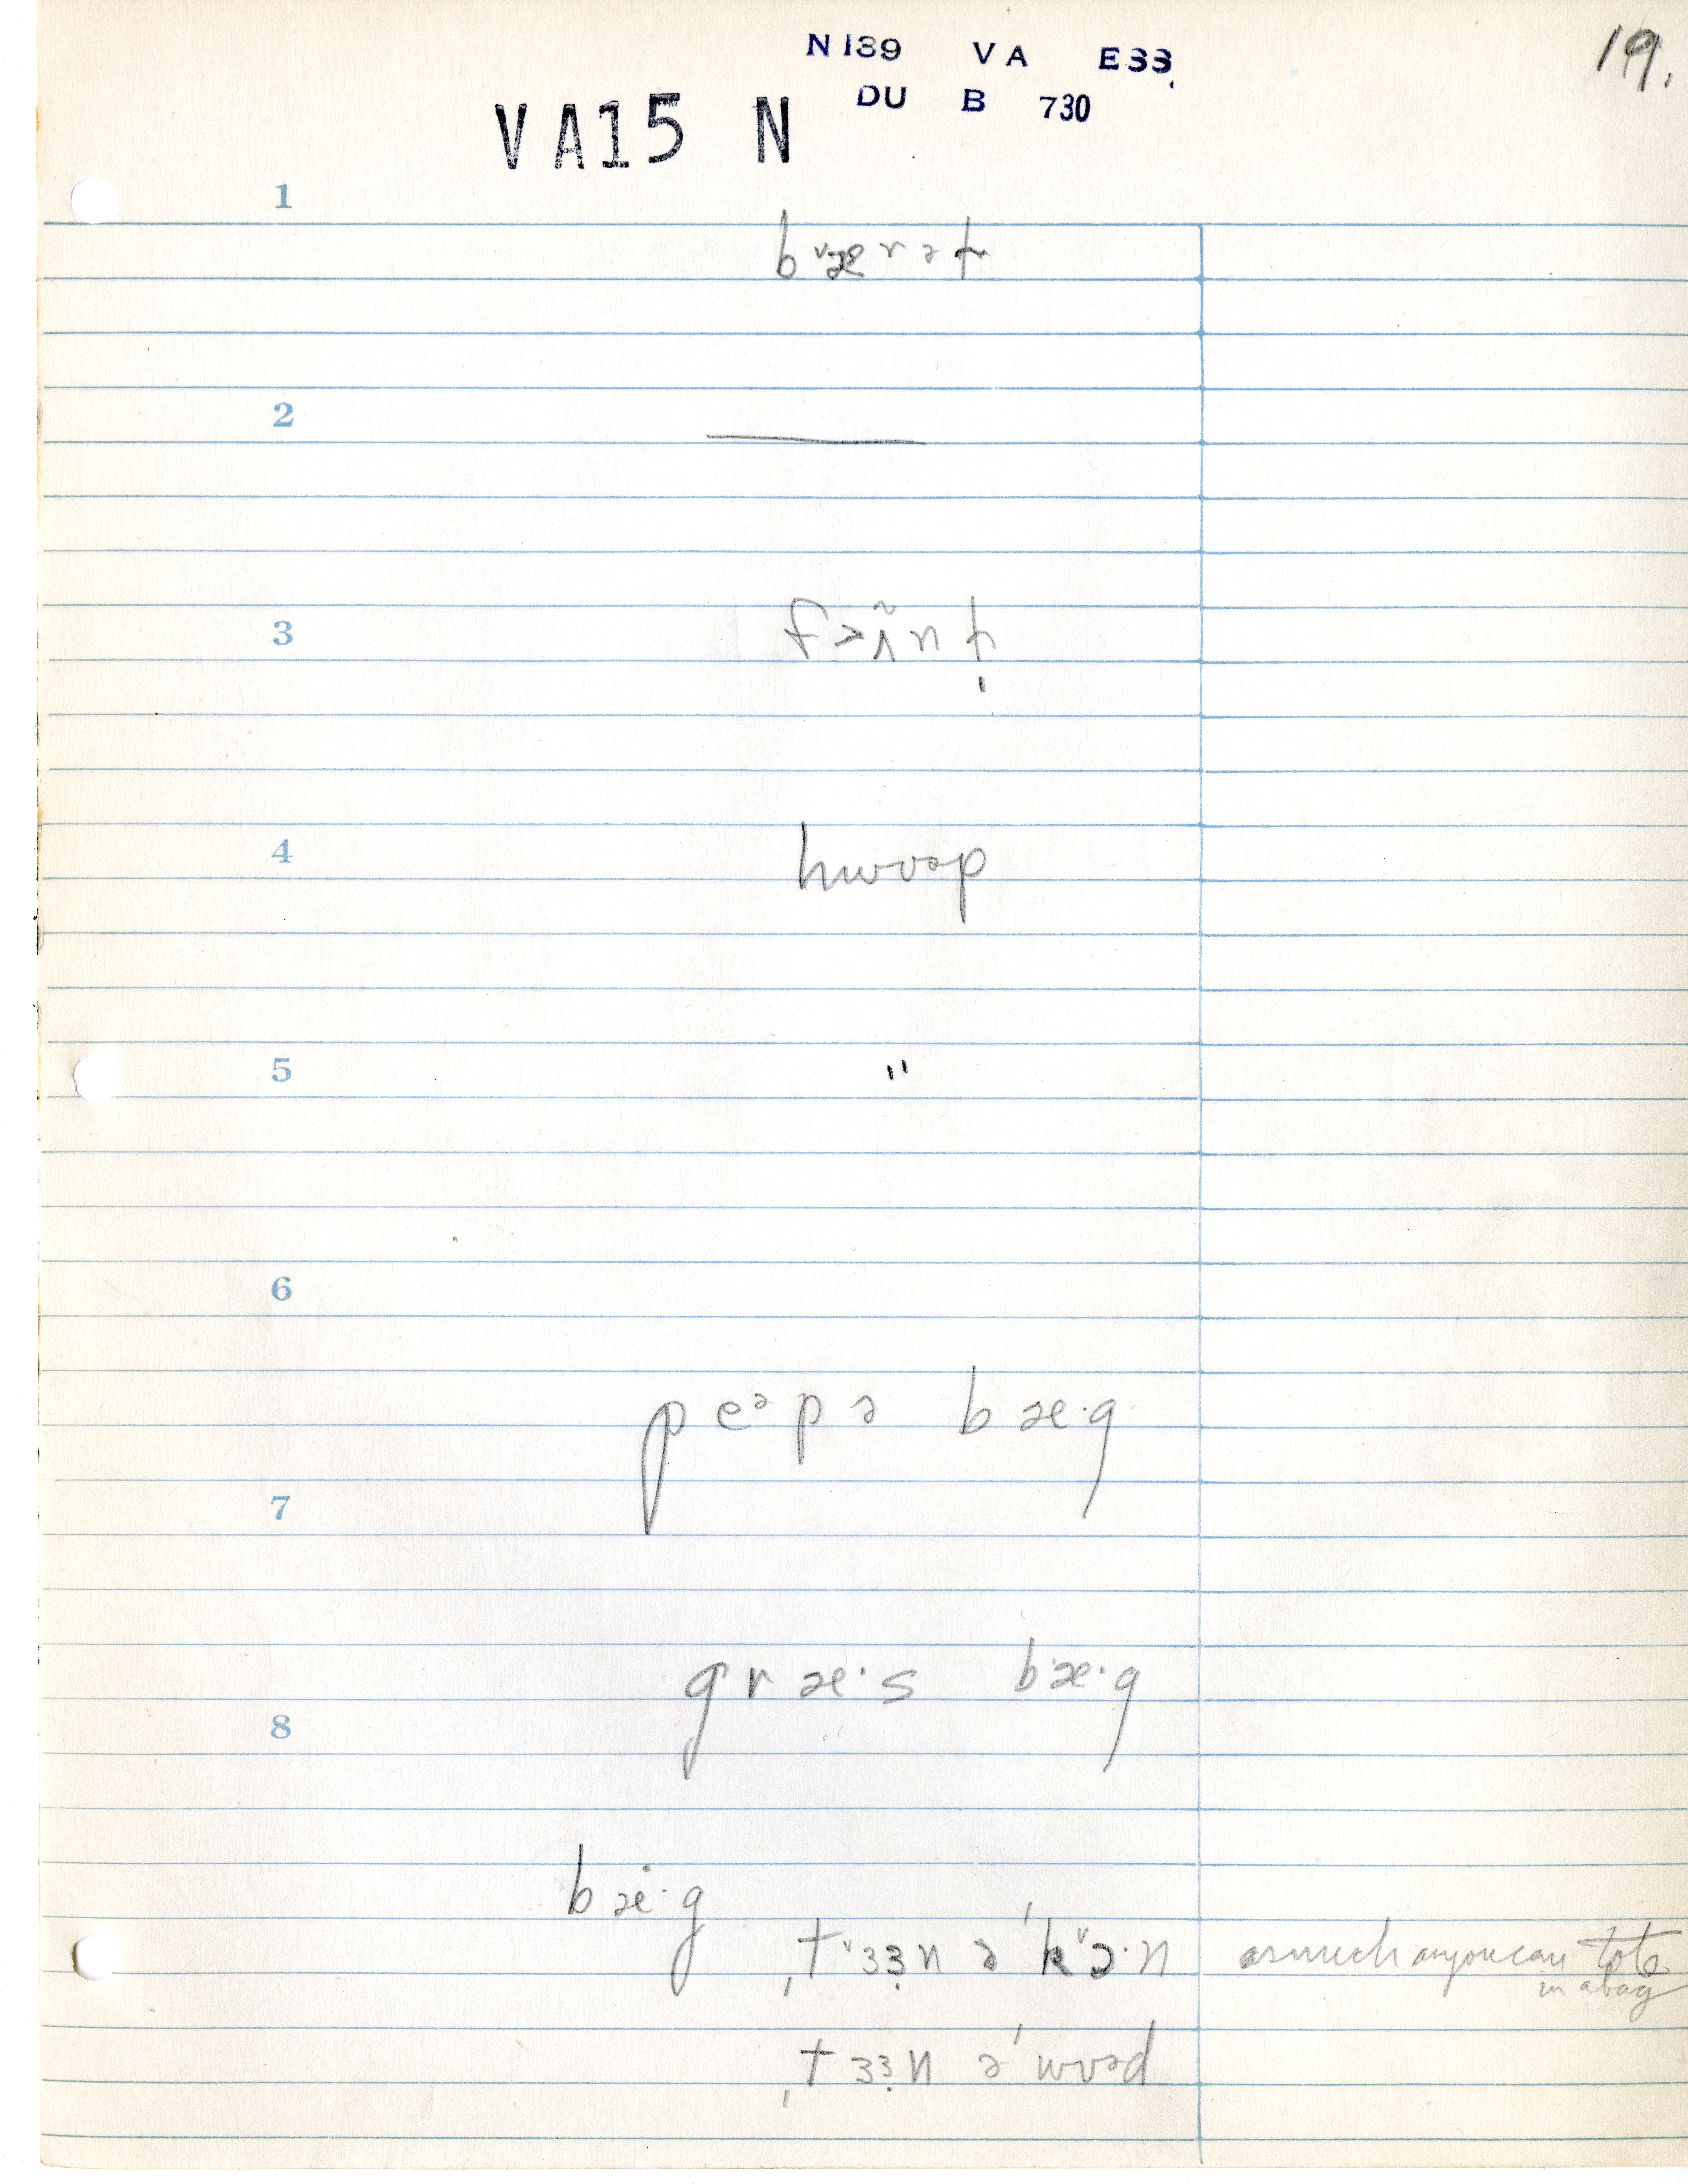 N 139 VA E33
19.
DU B 730
VA15 N
1
bᵛæɹət̬
2
——
3
f>ʌ̃ntˌ
4
hwʊəp
5
"
6
peᵊpə bæ·g
7
græ·s bæ·g
8
bæ·g
ˌtᵛɜɜ̣n ə ˈkᵛɔ·n as much as you can tote
in a bag
ˌtɜɜ̣n ə ˈwʊəd